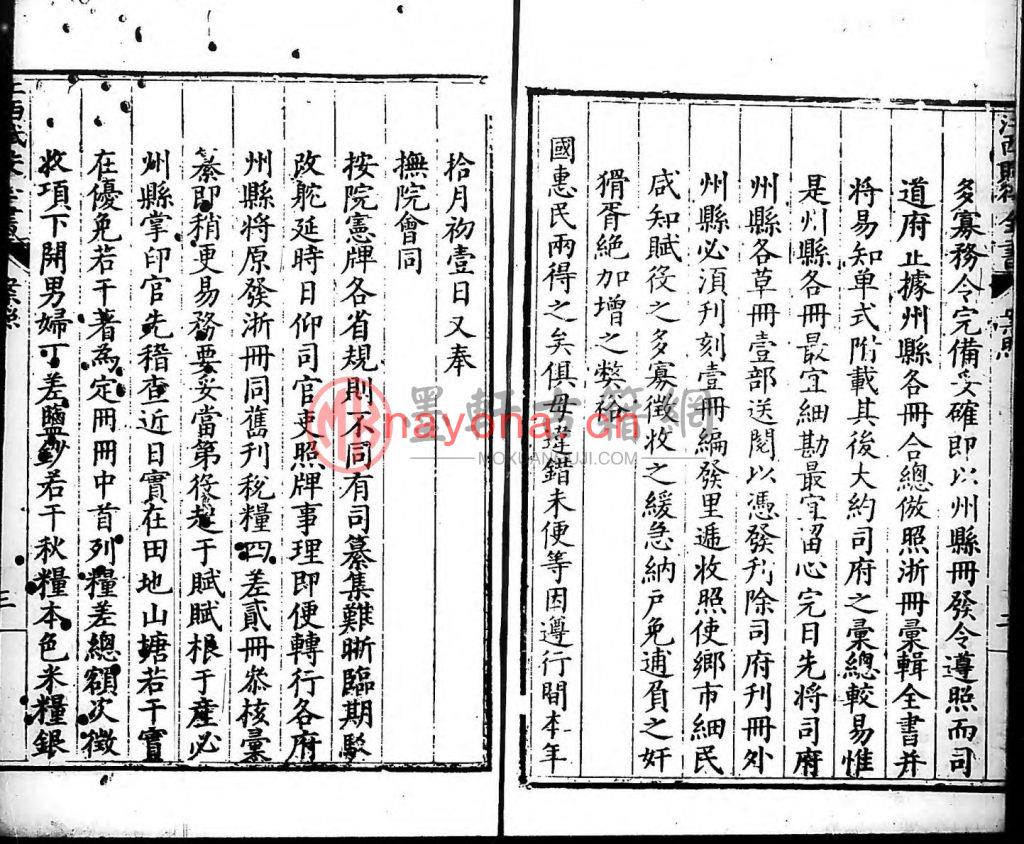 江西賦役全書 案照 二
多寡務令完備妥確即以州縣冊發令遵照而司
道府止據州縣各冊合總倣照浙冊彙輯全書并
將易知單式附載其後大約司府之彙總較易惟
是州縣各冊最宜細勘最宜留心完日先將司府
州縣各草冊壹部送閱以憑發刋除司府刊冊外
州縣必湏刋刻壹冊編發里遞收照使鄉市細民
咸知賦役之多寡徵收之緩急納户免逋負之奸
猾胥絶加增之弊
國惠民兩得之矣俱毋違錯未便等因遵行間本年
拾月初壹日又奉
撫院會同
按院憲牌各省規則不同有司纂集難晰臨期駁
改躭延時日仰司官吏照牌事理即便轉行各府
州縣將原發浙冊同舊刊稅糧四差貳冊叅核彙
纂即稍更易務要妥當第役起于賦賦根于產必
州縣掌印官先稽查近日實在田地山塘若干實
在優免若干著為定冊冊中首列糧差總額次徵
收項下開男婦丁差鹽鈔若干秋糧本色米糧銀
案照 三
墨軒古籍網
nayona.cn
MOXUANGUJI.COM